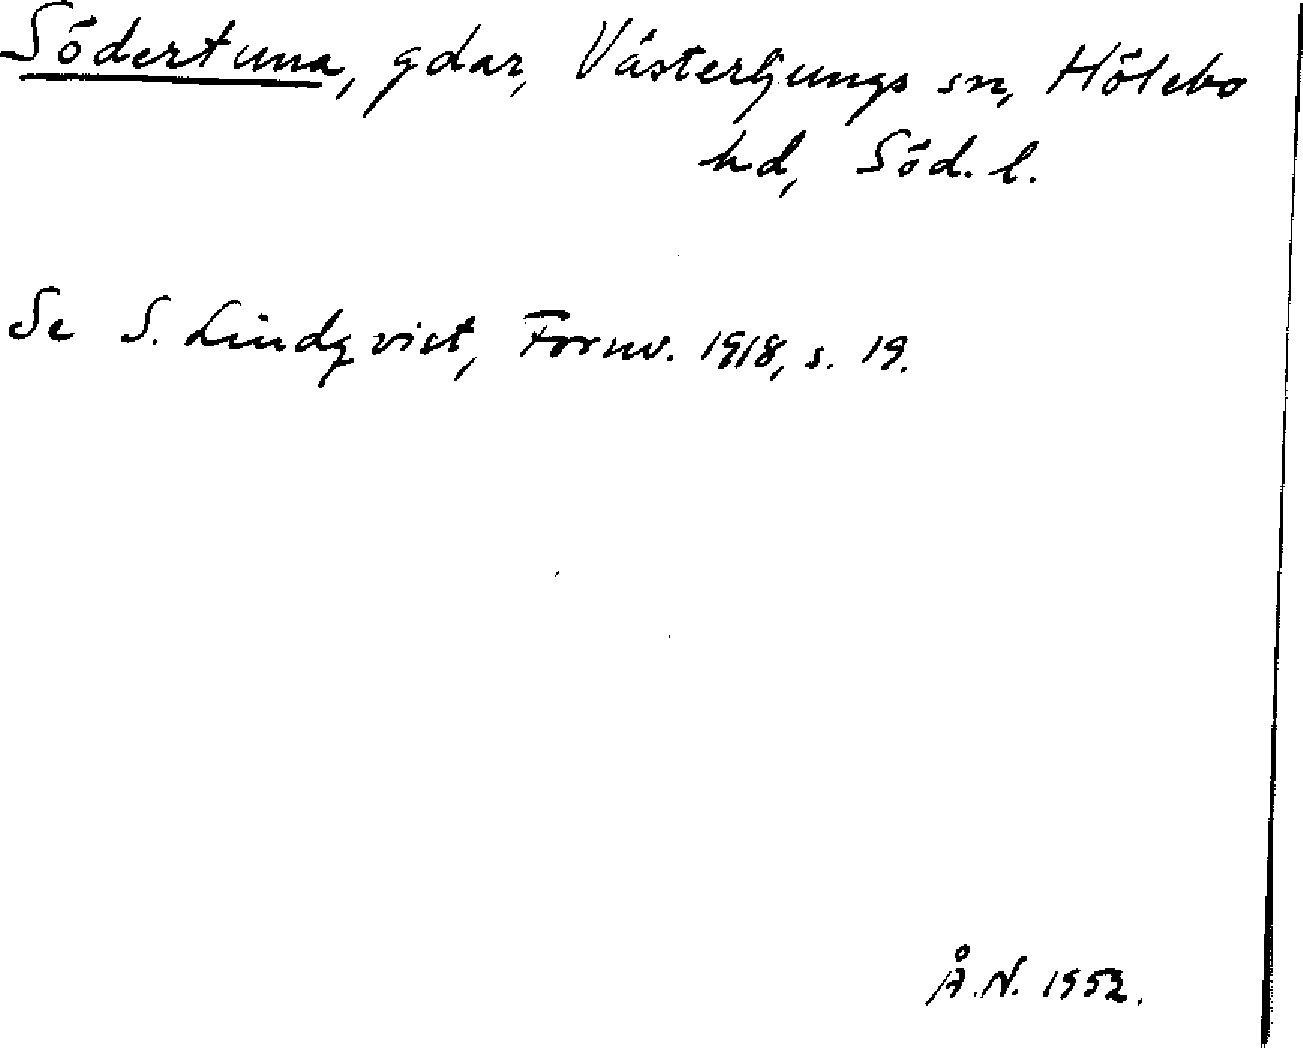 Södertuna, gdar, Västerljungs sn, Hölebo
hd, Söd. l.
Se S. Lindqvist, Fornv. 1918, s. 19.
Å.N. 1952.